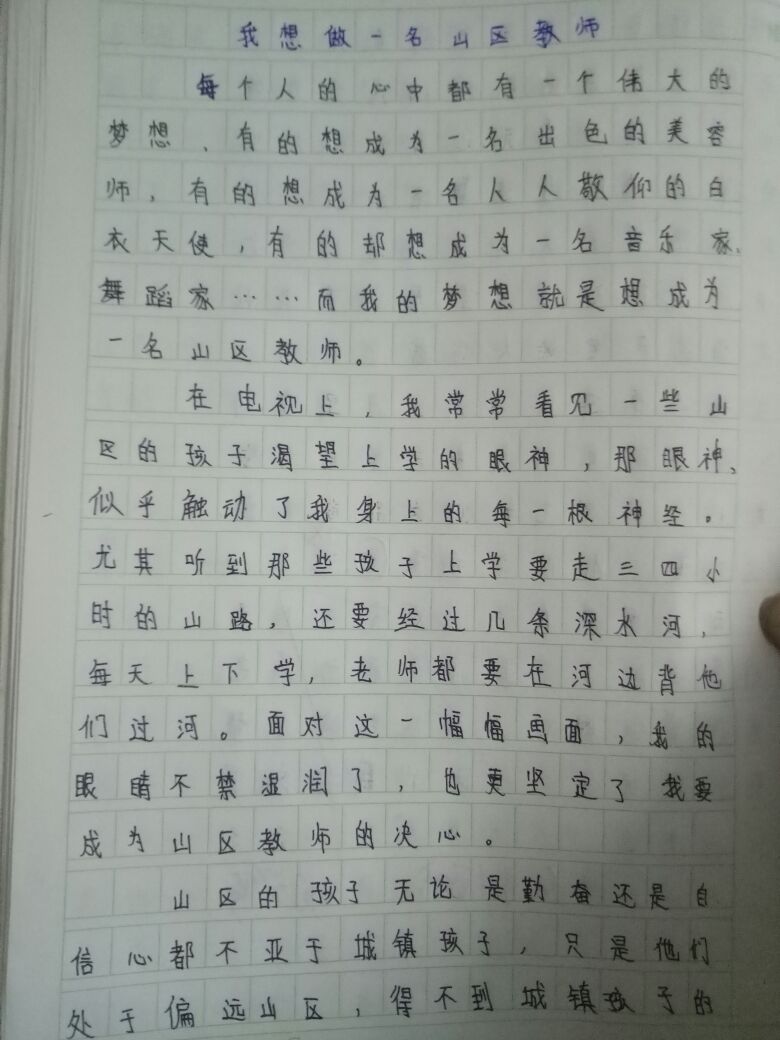 我想做一名山区教师
每个人的心中都有一个伟大的
梦想、有的想成为一名出色的美容
师，有的想成为一名人人敬仰的白
衣天使，有的却想成为一名音乐家、
舞蹈家……而我的梦想就是想成为
一名山区教师。
在电视上，我常常看见一些山
区的孩子渴望上学的眼神，那眼神、
似乎触动了我身上的每一根神经。
尤其听到那些孩子上学要走三四小
时的山路，还要经过几条深水河，
每天上下学，老师都要在河边背他
们过河。面对这一幅幅画面，我的
眼睛不禁湿润了，也更坚定了我要
成为山区教师的决心。
山区的孩子无论是勤奋还是自
信心都不亚于城镇孩子，只是他们
处于偏远山区，得不到城镇孩子的